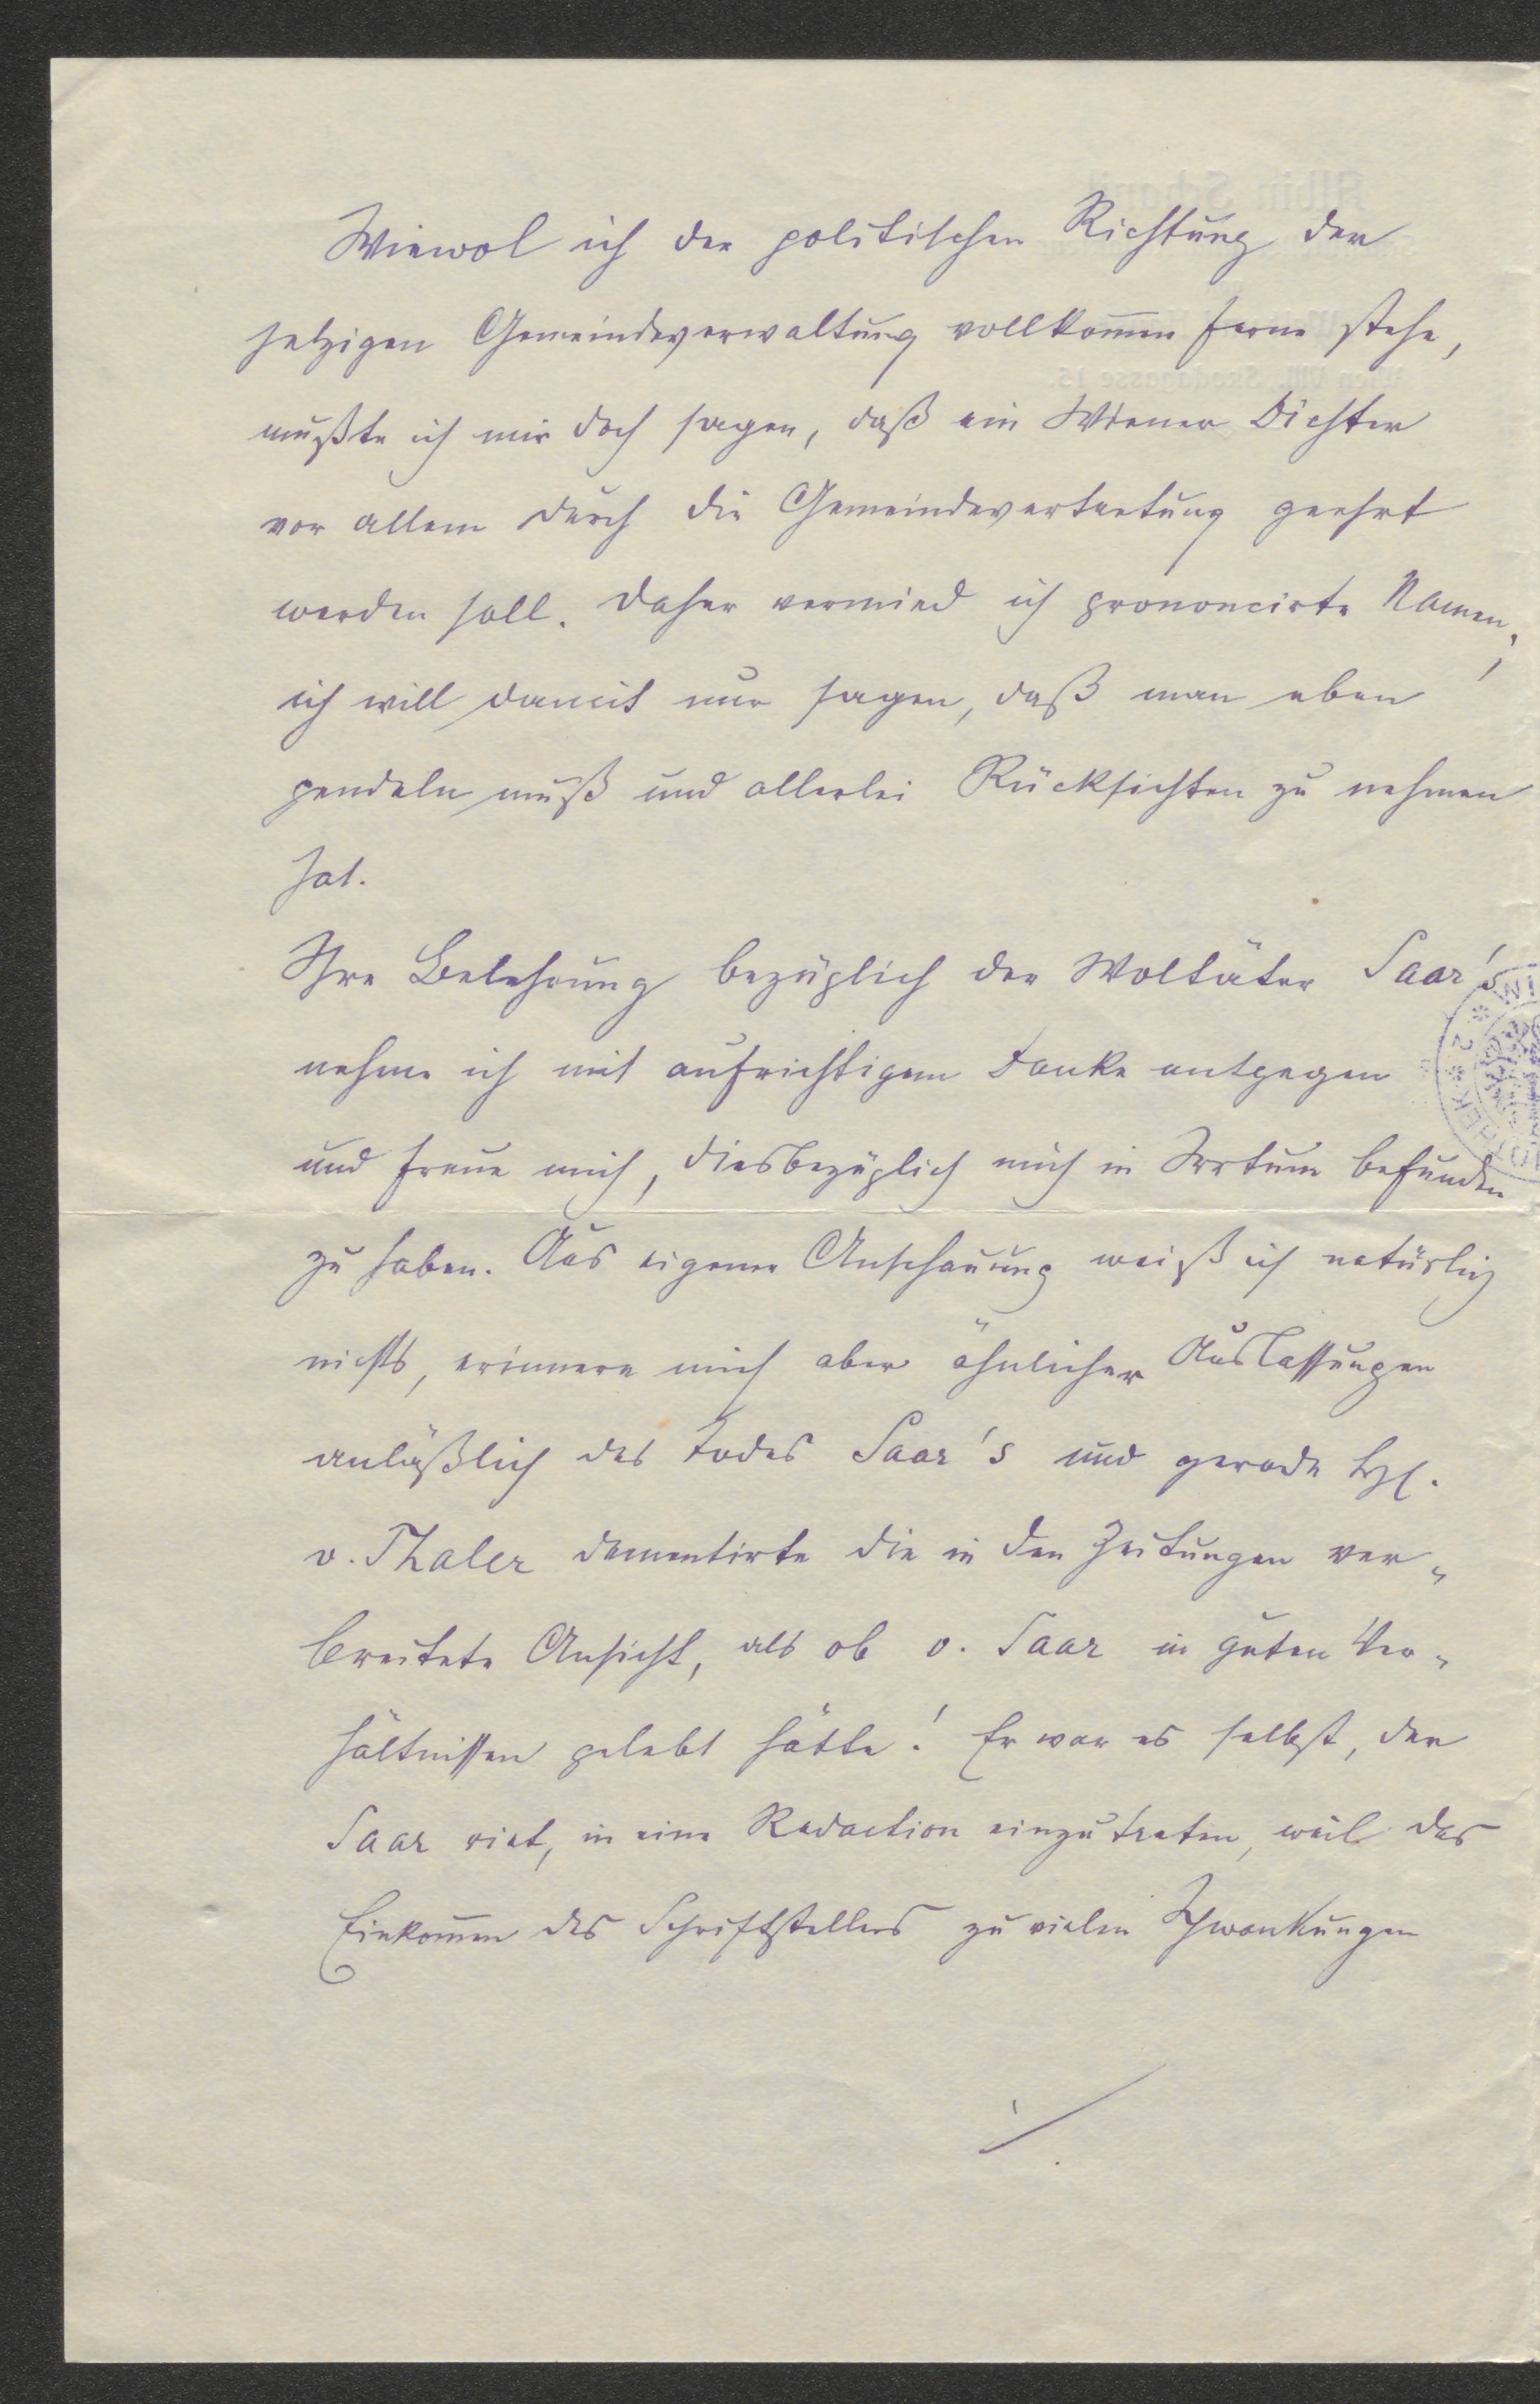 Wiewol ich der politischen Richtung der
jetzigen Gemeindeverwaltung vollkom̅en ferne stehe,
mußte ich mir doch sagen, daß ein Wiener Dichter
vor allem durch die Gemeindevertretung geehrt
werden soll. Daher vermied ich prononcirte Namen;
ich will damit nur sagen, daß man eben
pendeln muß und allerlei Rücksichten zu nehmen
hat.
Ihre Belehrung bezüglich der Woltäter Saar's
nehme ich mit aufrichtigem Danke entgegen
und freue mich, diesbezüglich mich in Irrtum befunden
zu haben. Aus eigener Anschauung weiß ich natürlich
nichts, erinnere mich aber ähnlicher Auslassungen
anläßlich des Todes Saar's und gerade
v. Thaler dementirte die in den Zeitungen ver-
breitete Ansicht, als ob v. Saar in guten Ver-
hältnissen gelebt hätte! Er war es selbst, der
Saar riet, in eine Redaction einzutreten, weil das
Einkom̅en des Schriftstellers zu vielen Schwankungen